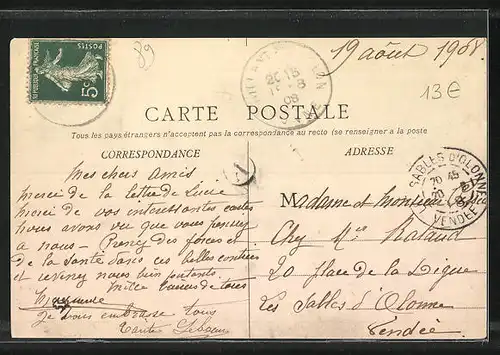 89
19 août 1908.
13€
RÉPUBLIQUE FRANÇAISE
POSTES
5
20 15
08
CARTE POSTALE
Tous les pays étrangers n'acceptent pas la correspondance au recto (se renseigner à la poste
CORRESPONDANCE
ADRESSE
SABLES D'OLONNE
VENDEE
Mes chers amis
merci de la lettre de Lucie
merci de vos intéressantes cartes
nous avons vu que vous pensiez
à nous - Prenez des forces et
de la santé dans ces belles contrées
et revenez nous bien portants.
Mille baisers de tous
Je vous embrasse tous
Tante
Madame et Monsieur
Chez Mme Rataud
20 place de la Digue
Les Sables d'Olonne
Vendée